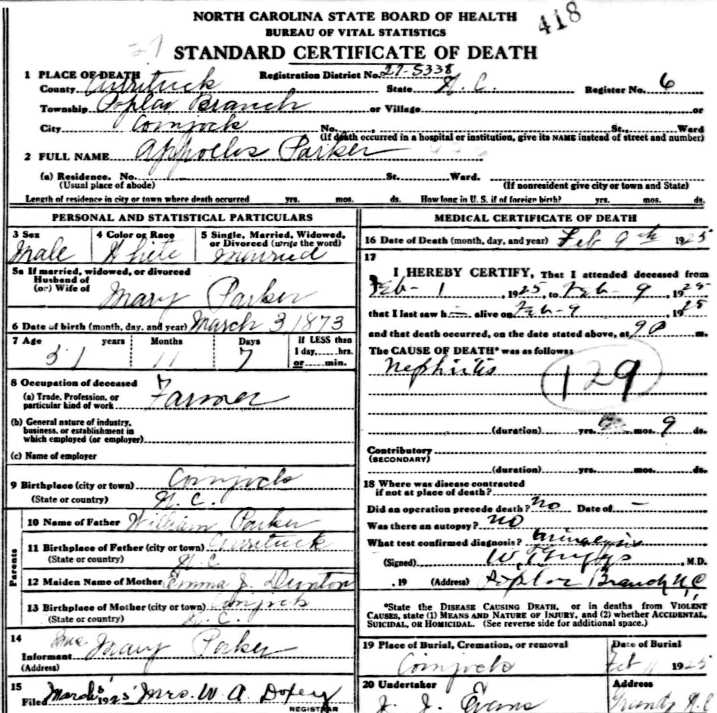 418
NORTH CAROLINA STATE BOARD OF HEALTH
BUREAU OF VITAL STATISTICS
STANDARD CERTIFICATE OF DEATH
1 PLACE OF DEATH Registration District No. 27-5338
County Currituck State N. C. Register No. 6
Township Poplar Branch or Village or
City Coinjock No. St., Ward
(If death occurred in a hospital or institution, give its NAME instead of street and number)
2 FULL NAME Appollos Parker
(a) Residence. No. St. Ward.
(Usual place of abode) (If nonresident give city or town and State)
Length of residence in city or town where death occurred yrs. mos. ds. How long in U. S. if of foreign birth? yrs. mos. ds.
PERSONAL AND STATISTICAL PARTICULARS
3 Sex 4 Color or Race 5 Single, Married, Widowed, or Divorced (write the word)
Male White Married
5a If married, widowed, or divorced
Husband of
(or) Wife of Mary Parker
6 Date of birth (month, day, and year) March 3 1873
7 Age years Months Days If LESS than 1 day, hrs. or min.
51 11 7
8 Occupation of deceased
(a) Trade, Profession, or particular kind of work Farmer
(b) General nature of industry, business, or establishment in which employed (or employer)
(c) Name of employer
9 Birthplace (city or town) Coinjock
(State or country) N. C.
Parents
10 Name of Father William Parker
11 Birthplace of Father (city or town) Currituck
(State or country) N C
12 Maiden Name of Mother Emma J. Dunton
13 Birthplace of Mother (city or town) Coinjock
(State or country) N. C.
14
Informant Mrs Mary Parker
(Address)
15
Filed March 3 1925 Mrs. W. A. Doxey
REGISTRAR
MEDICAL CERTIFICATE OF DEATH
16 Date of Death (month, day, and year) Feb 9th 1925
17
I HEREBY CERTIFY, That I attended deceased from
Feb - 1, 1925, to Feb - 9, 1925
that I last saw h alive on Feb - 9 1925
and that death occurred, on the date stated above, at 9 P m.
The CAUSE OF DEATH* was as follows:
Nephritis
129
(duration) yrs. mos. 9 ds.
Contributory
(SECONDARY)
(duration) yrs. mos. ds.
18 Where was disease contracted
if not at place of death?
Did an operation precede death? No Date of -
Was there an autopsy? No
What test confirmed diagnosis? Urinalysis
(Signed) W T Griggs, M.D.
, 19 (Address) Poplar Branch N C
*State the DISEASE CAUSING DEATH, or in deaths from VIOLENT
CAUSES, state (1) MEANS AND NATURE OF INJURY, and (2) whether ACCIDENTAL,
SUICIDAL, OR HOMICIDAL. (See reverse side for additional space.)
19 Place of Burial, Cremation, or removal Date of Burial
Coinjock Feb 11 1925
20 Undertaker Address
J. J. Evans Grandy N. C